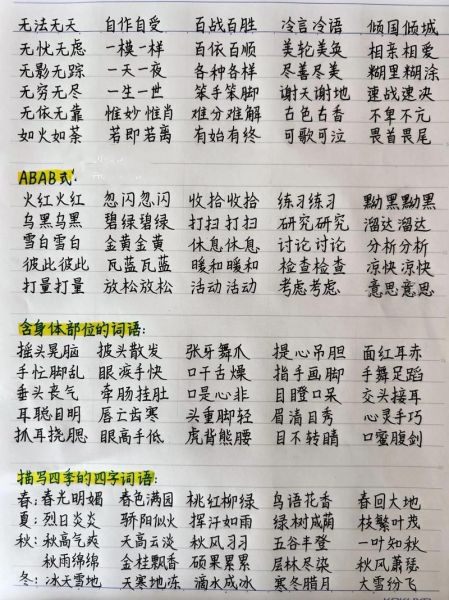 无法无天 自作自受 百战百胜 冷言冷语 倾国倾城
无忧无虑 一模一样 百依百顺 美轮美奂 相亲相爱
无影无踪 一天一夜 各种各样 尽善尽美 糊里糊涂
无穷无尽 一生一世 笨手笨脚 谢天谢地 速战速决
无依无靠 惟妙惟肖 难分难解 古色古香 不卑不亢
如火如荼 若即若离 有始有终 可歌可泣 畏首畏尾
ABAB式:
火红火红 忽闪忽闪 收拾收拾 练习练习 黝黑黝黑
乌黑乌黑 碧绿碧绿 打扫打扫 研究研究 溜达溜达
雪白雪白 金黄金黄 休息休息 讨论讨论 分析分析
彼此彼此 瓦蓝瓦蓝 暖和暖和 检查检查 凉快凉快
打量打量 放松放松 活动活动 考虑考虑 意思意思
含身体部位的词语:
摇头晃脑 披头散发 张牙舞爪 提心吊胆 面红耳赤
手忙脚乱 眼疾手快 口干舌燥 指手画脚 手舞足蹈
垂头丧气 牵肠挂肚 口是心非 目瞪口呆 交头接耳
耳聪目明 唇亡齿寒 头重脚轻 眉清目秀 心灵手巧
抓耳挠腮 眼高手低 虎背熊腰 目不转睛 口蜜腹剑
描写四季的四字词语:
春:春光明媚 春色满园 桃红柳绿 鸟语花香 春回大地
夏:烈日炎炎 骄阳似火 挥汗如雨 绿树成荫 枝繁叶茂
秋:秋高气爽 天高云淡 秋风习习 五谷丰登 一叶知秋
秋雨绵绵 金桂飘香 硕果累累 层林尽染 秋风萧瑟
冬:冰天雪地 天寒地冻 滴水成冰 寒冬腊月 大雪纷飞